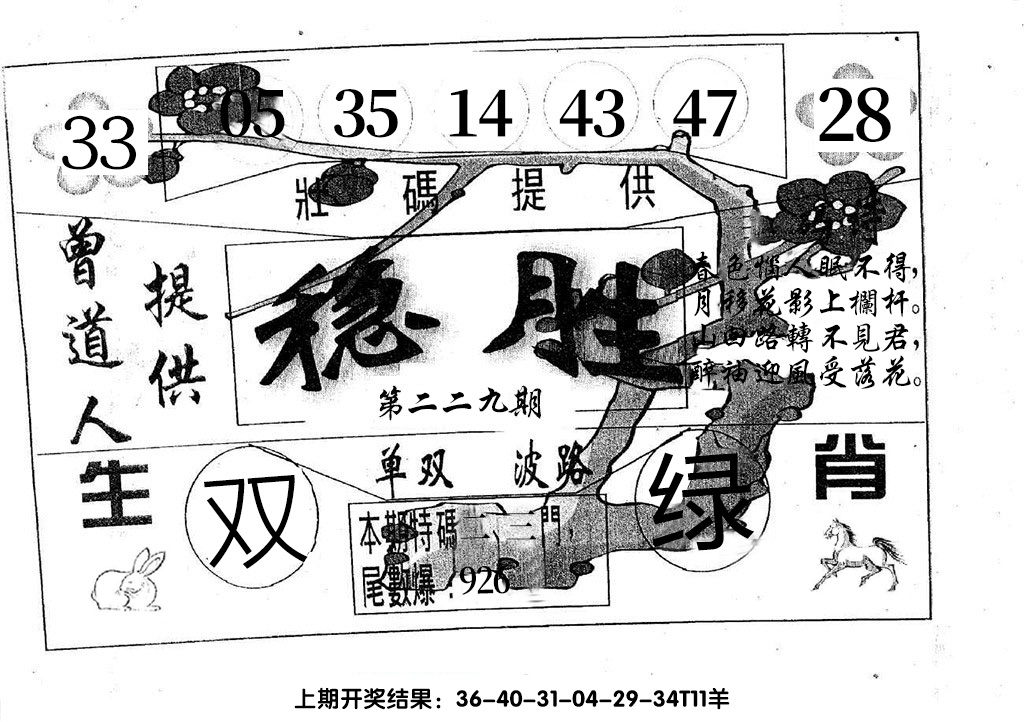 33 05 35 14 43 47 28
壯碼提供
曾道人
提供
稳胜
第二二九期
春色惱人眠不得，
月移花影上欄杆。
山回路轉不見君，
醉袖迎風受落花。
单双 波路
生
双
绿
肖
本期特碼二、三門，
尾數爆：926
上期开奖结果：36-40-31-04-29-34T11羊